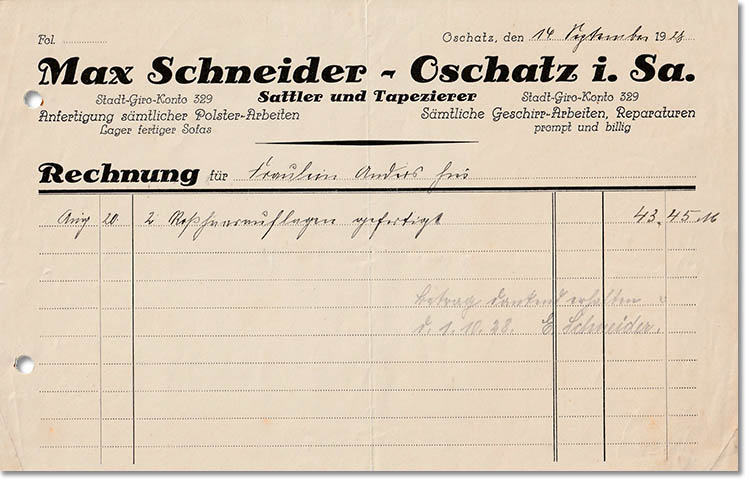 Fol.
Oschatz, den 14 September 1928
Max Schneider - Oschatz i. Sa.
Stadt-Giro-Konto 329 Sattler und Tapezierer Stadt-Giro-Konto 329
Anfertigung sämtlicher Polster-Arbeiten Sämtliche Geschirr-Arbeiten, Reparaturen
Lager fertiger Sofas prompt und billig
Rechnung für Fräulein Anders hier
Aug 20 2 Roßhaarauflagen gefertigt 43.45 M
Betrag dankend erhalten
d. 1.10.28. E. Schneider.